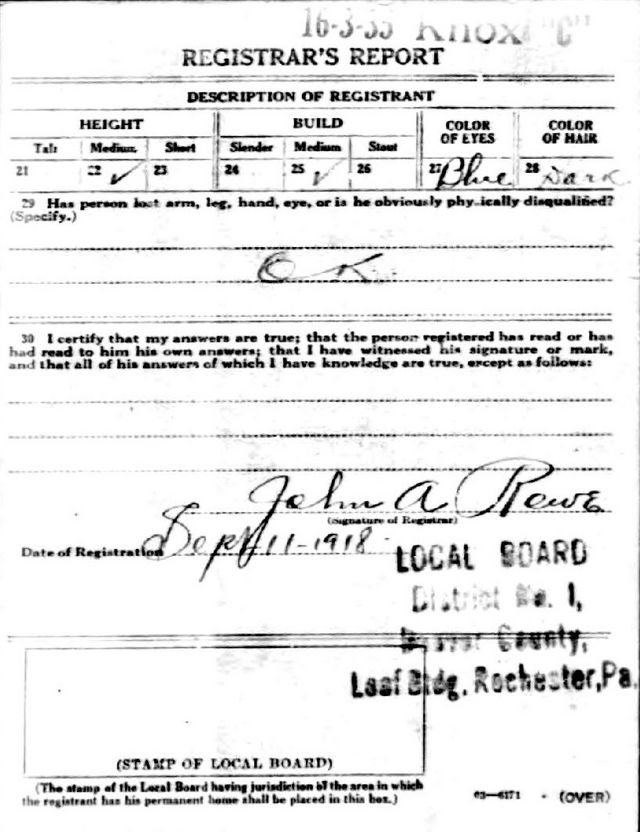 16-3-35 Knox "C"
REGISTRAR'S REPORT
DESCRIPTION OF REGISTRANT
HEIGHT BUILD COLOR OF EYES COLOR OF HAIR
Tall Medium Short Slender Medium Stout
21 22 ✓ 23 24 25 ✓ 26 27 Blue 28 Dark
29 Has person lost arm, leg, hand, eye, or is he obviously physically disqualified?
(Specify.)
O K
30 I certify that my answers are true; that the person registered has read or has
had read to him his own answers; that I have witnessed his signature or mark,
and that all of his answers of which I have knowledge are true, except as follows:
John A Rowe
(Signature of Registrar)
Date of Registration Sept 11-1918
LOCAL BOARD
District No. 1,
Beaver County,
Leaf Bldg. Rochester, Pa.
(STAMP OF LOCAL BOARD)
(The stamp of the Local Board having jurisdiction of the area in which
the registrant has his permanent home shall be placed in this box.)
03—6171 (OVER)